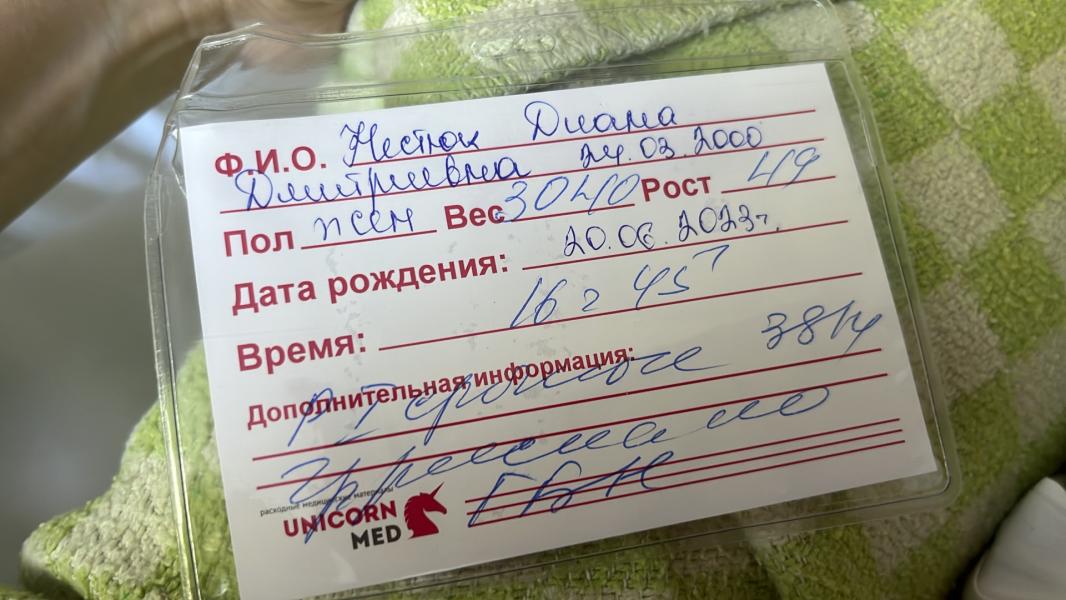 Ф.И.О. Нестюк Диана
Дмитриевна 24.03.2000
Пол жен Вес 3040 Рост 49
Дата рождения: 20.06.2023г.
Время: 16 г 45
Дополнительная информация:
Р I срочные 38
ГВН
расходные медицинские материалы
UNICORN
MED